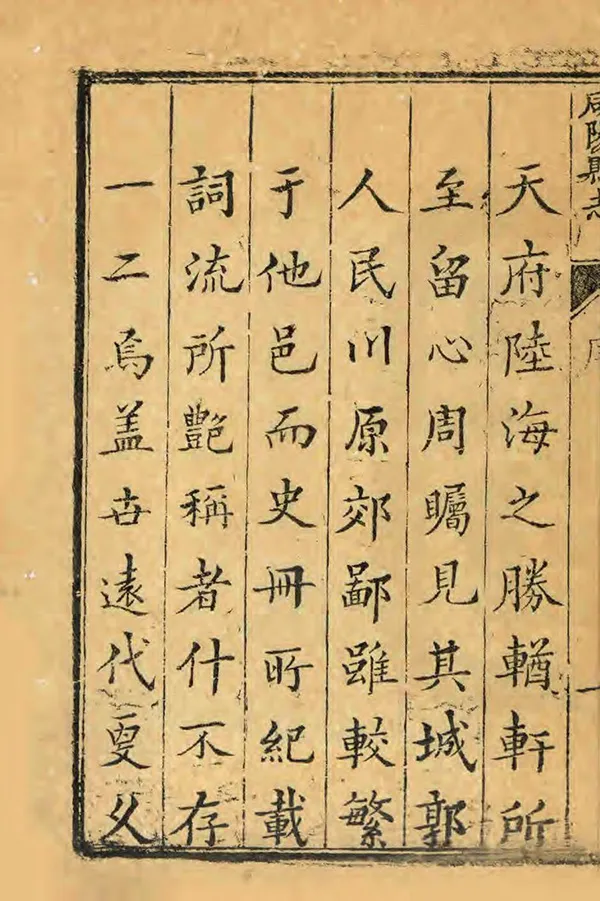 咸陽縣志
序
一
天府陸海之勝輶軒所
至留心周矚見其城郭
人民川原郊鄙雖較繁
于他邑而史冊所紀載
詞流所艷稱者什不存
一二焉盖世遠代更久